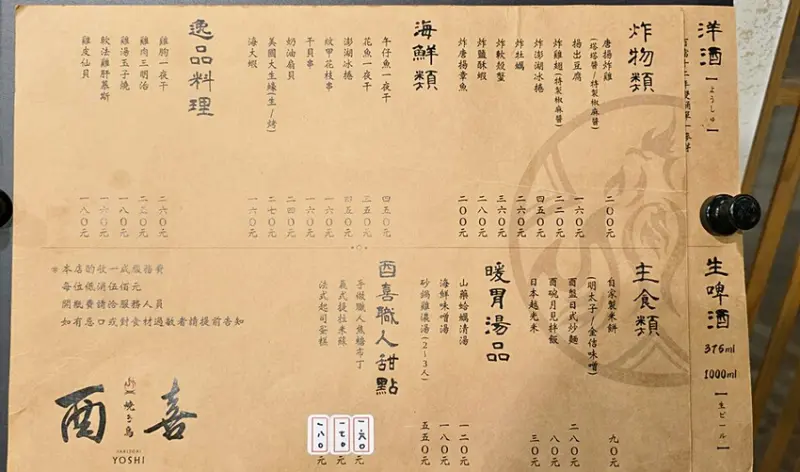 洋酒【ようしゅ】
炸物類
唐揚炸雞 二〇〇元
(塔塔醬/特製椒麻醬)
揚出豆腐 一六〇元
炸雞翅(特製椒麻醬) 二二〇元
炸澎湖冰捲 四五〇元
炸牡蠣 二六〇元
炸軟殼蟹 三六〇元
炸鹽酥蝦 二八〇元
炸唐揚章魚 二〇〇元
海鮮類
午仔魚一夜干 四五〇元
花魚一夜干 三五〇元
澎湖冰捲 四五〇元
紋甲花枝串 一六〇元
干貝串 一六〇元
奶油扇貝 二四〇元
美國大生蠔(生/烤) 二七〇元
海大蝦 一六〇元
逸品料理
雞胸一夜干 二六〇元
雞肉三明治
雞湯玉子燒 一八〇元
軟法雞肝慕斯 一六〇元
雞皮仙貝 一八〇元
生啤酒
375ml
1000ml
【生ビール】
主食類
自家製米餅 九〇元
(明太子/金信味噌)
酉盤日式炒麵 二八〇元
酉碗月見拌飯 八〇元
日本越光米 三〇元
暖胃湯品
山藥蛤蠣清湯 一二〇元
海鮮味噌湯 一八〇元
砂鍋雞濃湯(2~3人) 五五〇元
酉喜職人甜點
手做職人焦糖布丁 一六〇元
義式提拉米蘇 一七〇元
法式起司蛋糕 一八〇元
※本店酌收一成服務費
每位低消伍佰元
開瓶費請洽服務人員
如有忌口或對食材過敏者請提前告知
酉喜
焼き鳥
YAKITORI
YOSHI